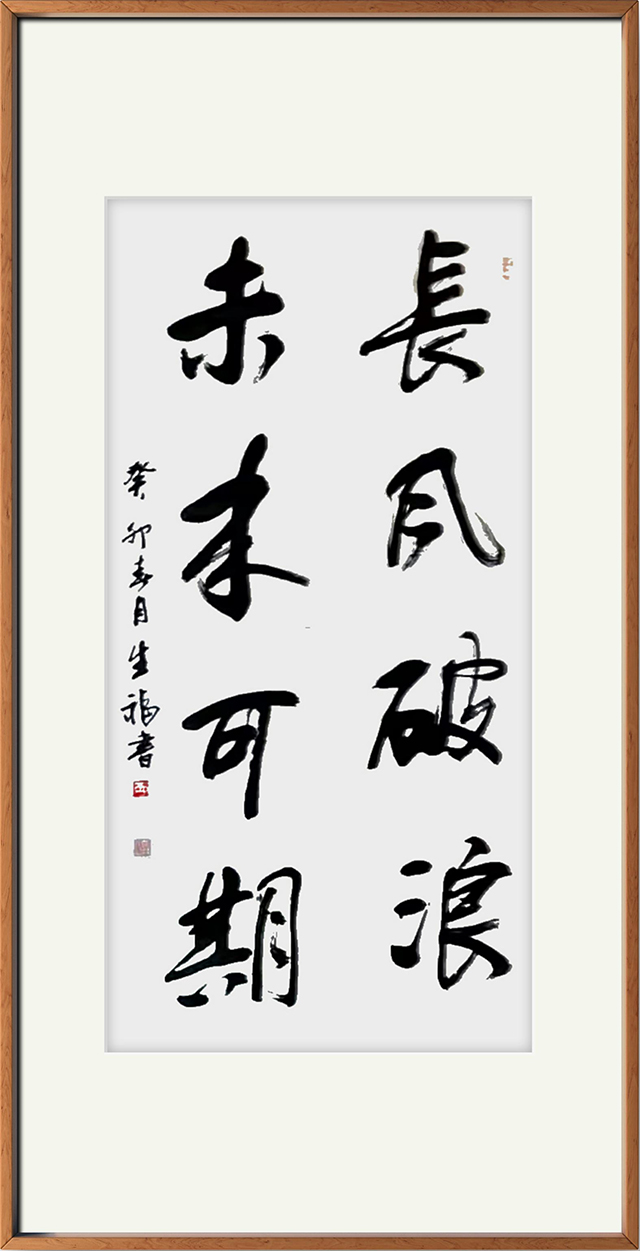 長风破浪
未来可期
癸卯春月生福书